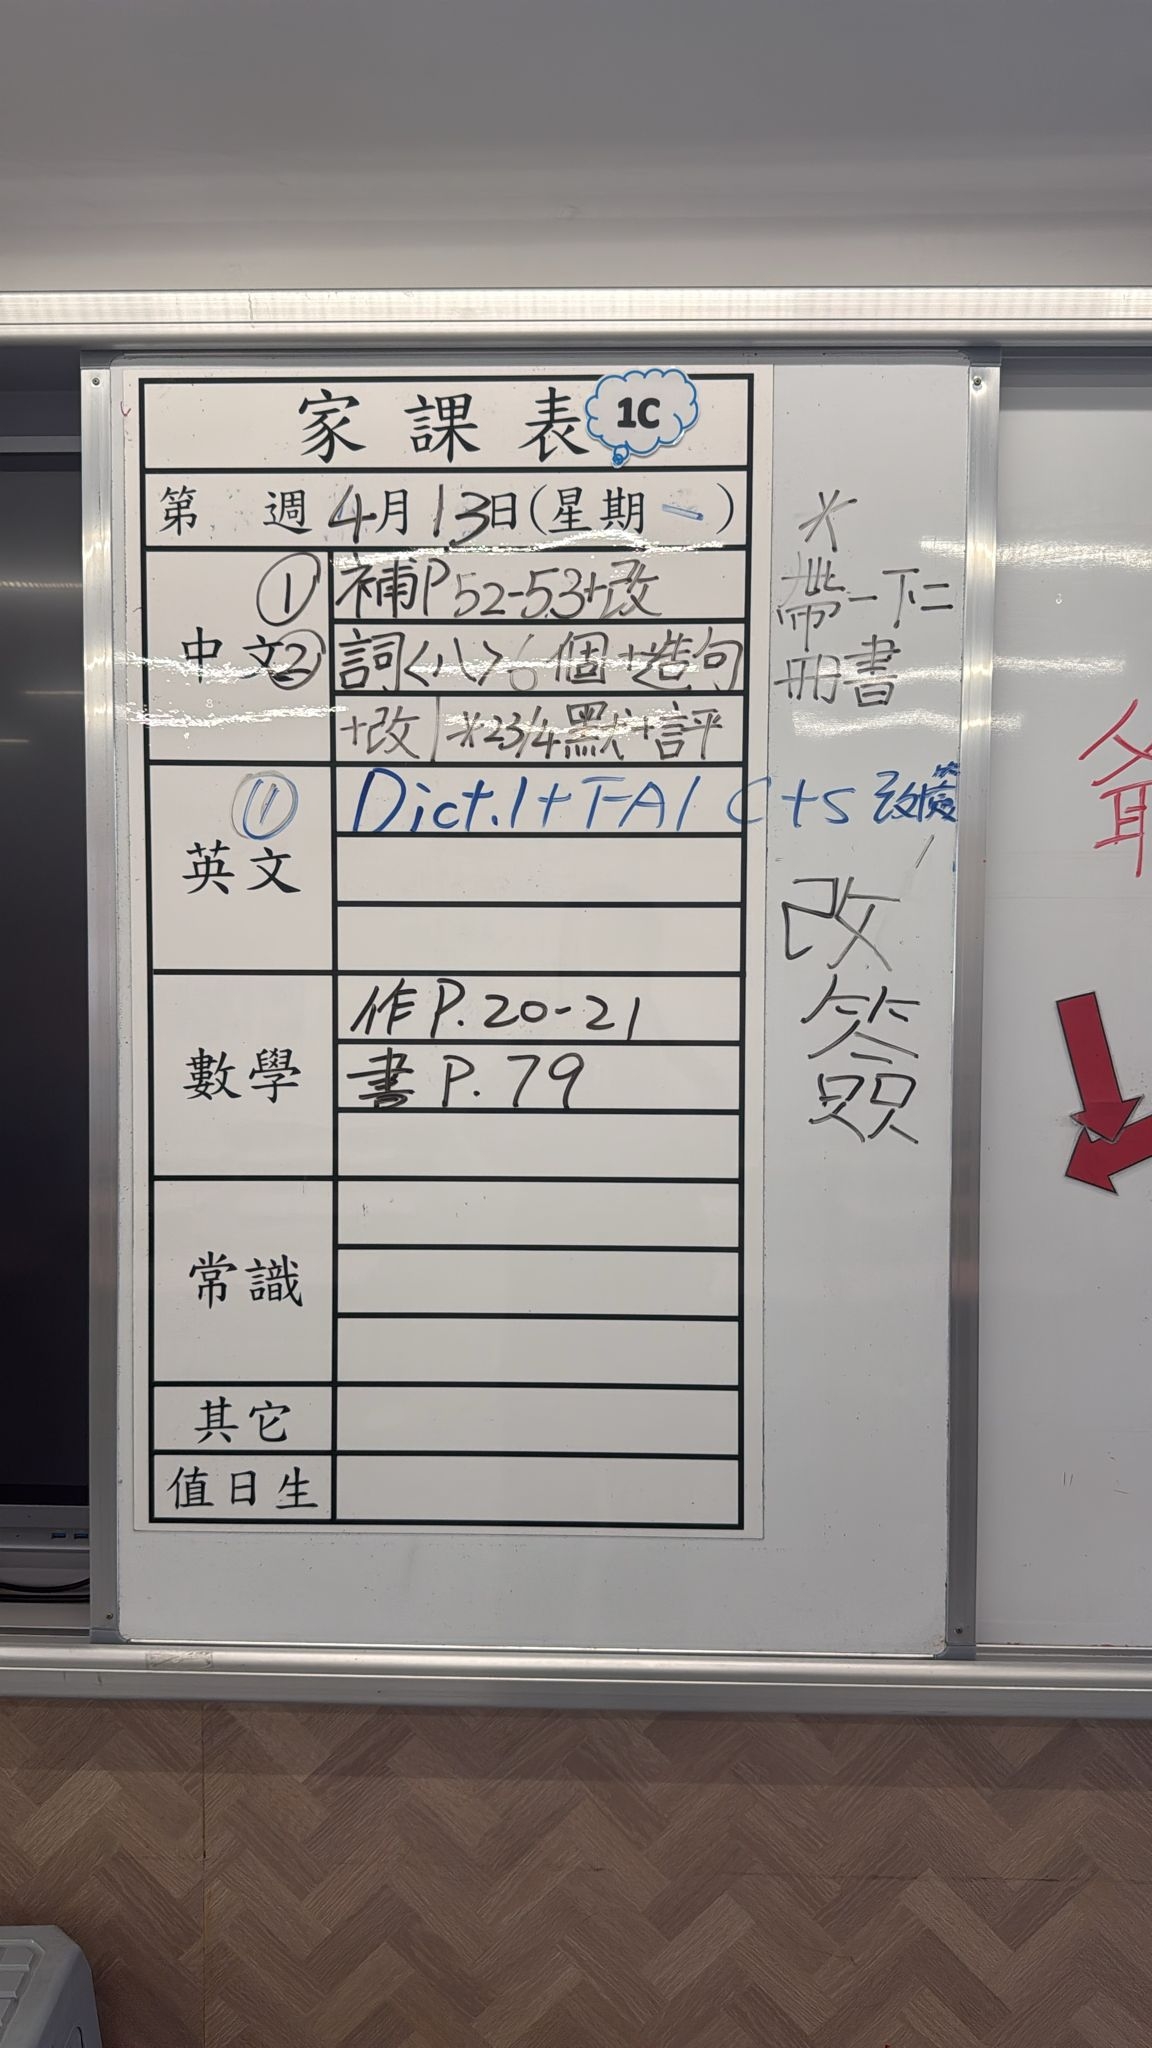 家課表 1C
第 週 4月13日(星期一)
中文
① 補P52-53+改
② 詞<八>6個+造句
+改 *23/4默+評
英文
⑪ Dict.1+TA1 C+S 改簽
數學
作P.20-21
書P.79
常識
其它
值日生
*
帶一下二
冊書
改
簽